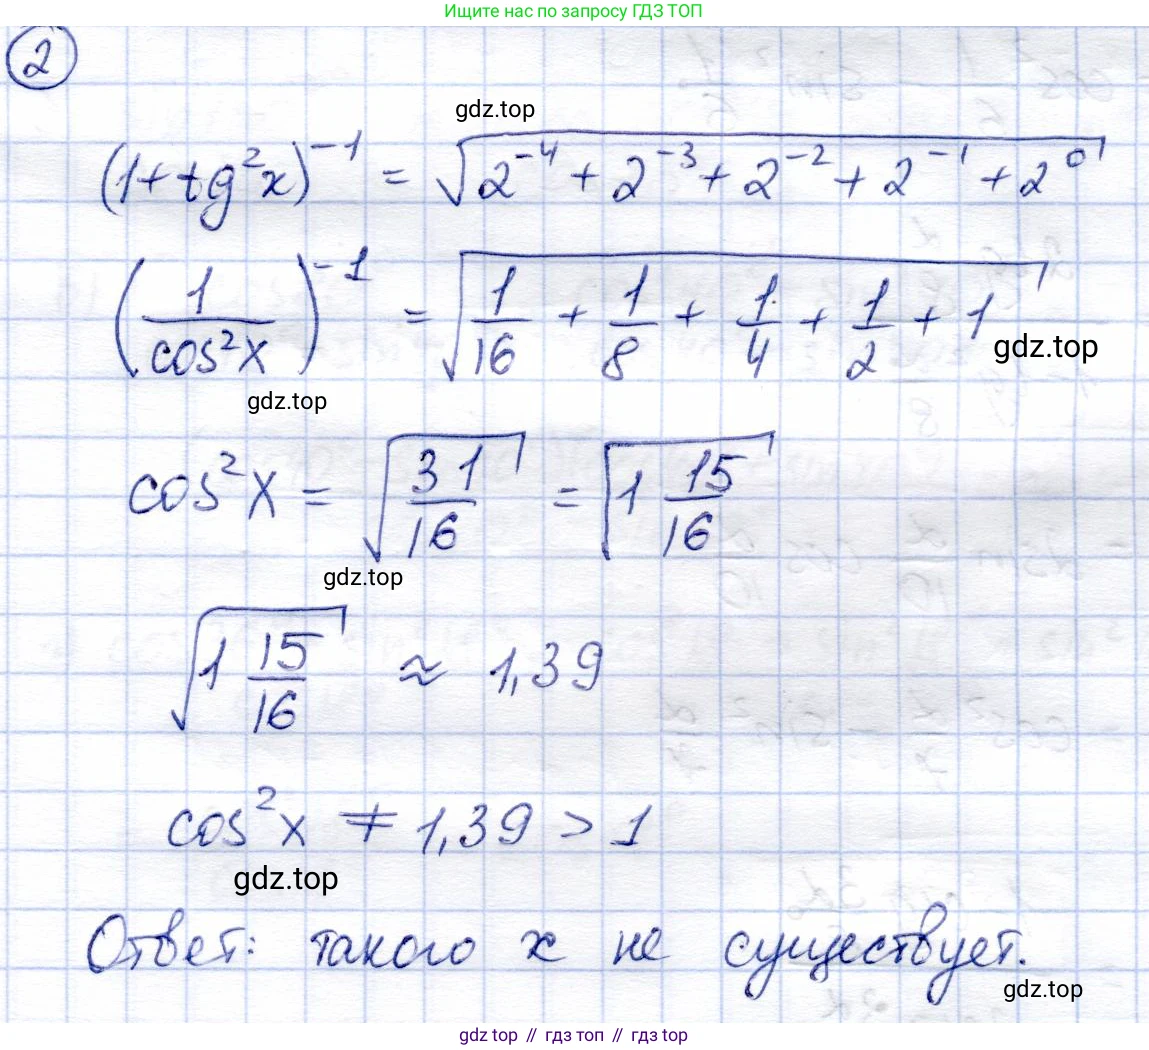 Ищите нас по запросу ГДЗ ТОП
2
gdz.top
(1+tg²x)⁻¹ = √(2⁻⁴ + 2⁻³ + 2⁻² + 2⁻¹ + 2⁰)
(1/cos²x)⁻¹ = √(1/16 + 1/8 + 1/4 + 1/2 + 1)
gdz.top
gdz.top
cos²x = √(31/16) = √(1 15/16)
gdz.top
√(1 15/16) ≈ 1,39
cos²x ≠ 1,39 > 1
gdz.top
Ответ: такого x не существует.
gdz.top
gdz top // гдз топ // gdz top